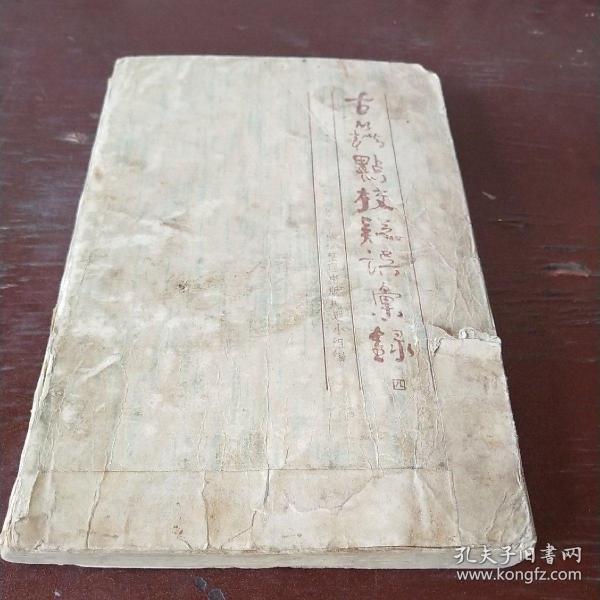 古籍點校疑誤彙録
四
孔夫子旧书网
www.kongfz.com